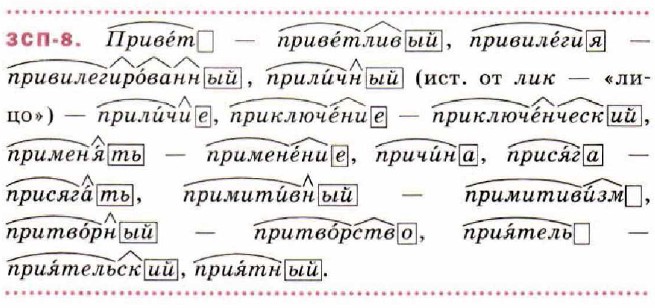 ЗСП-8. Приве́т — приве́тливый, привиле́гия —
привилегиро́ванный, прили́чный (ист. от лик — «ли-
цо») — прили́чие, приключе́ние — приключе́нческий,
применя́ть — примене́ние, причи́на, прися́га —
присяга́ть, примити́вный — примитиви́зм,
притво́рный — притво́рство, прия́тель —
прия́тельский, прия́тный.